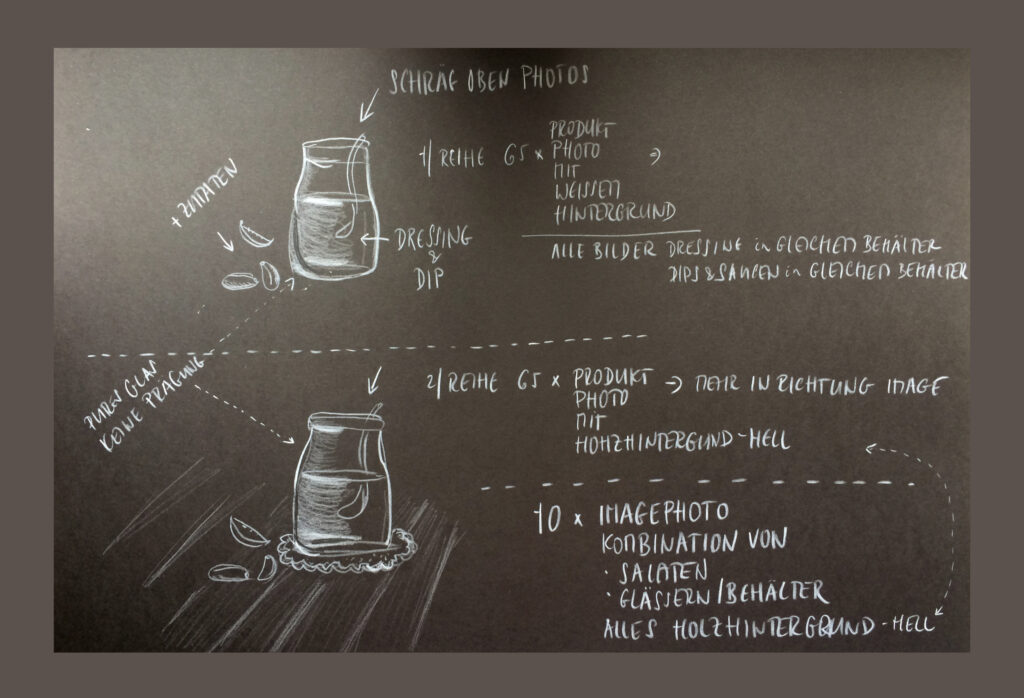 SCHRÄG OBEN PHOTOS
+ ZUTATEN
DRESSING
&
DIP
1/ REIHE 65 x PRODUKT
PHOTO
MIT
WEISSEM
HINTERGRUND
ALLE BILDER DRESSING in GLEICHEM BEHÄLTER
DIPS & SAUCEN in GLEICHEM BEHÄLTER
PURES GLAS
KEINE PRÄGUNG
2/ REIHE 65 x PRODUKT → MEHR IN RICHTUNG IMAGE
PHOTO
MIT
HOHZHINTERGUND - HELL
10 x IMAGEPHOTO
KOMBINATION VON
· SALATEN
· GLÄSSERN/BEHÄLTER
ALLES HOLZHINTERGRUND - HELL